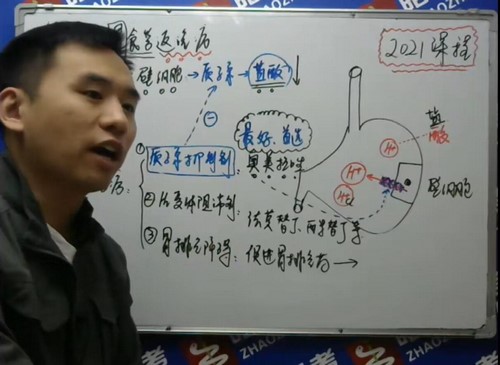 食管反流病
2021课程
壁细胞→质子泵→盐酸↓
最好、首选
① 质子泵抑制剂：奥美拉唑
病：
② H₂受体阻滞剂：法莫替丁、西米替丁等
③ 胃排空障碍：促进胃排空药→
盐酸
H⁺
H⁺
H⁺
壁细胞